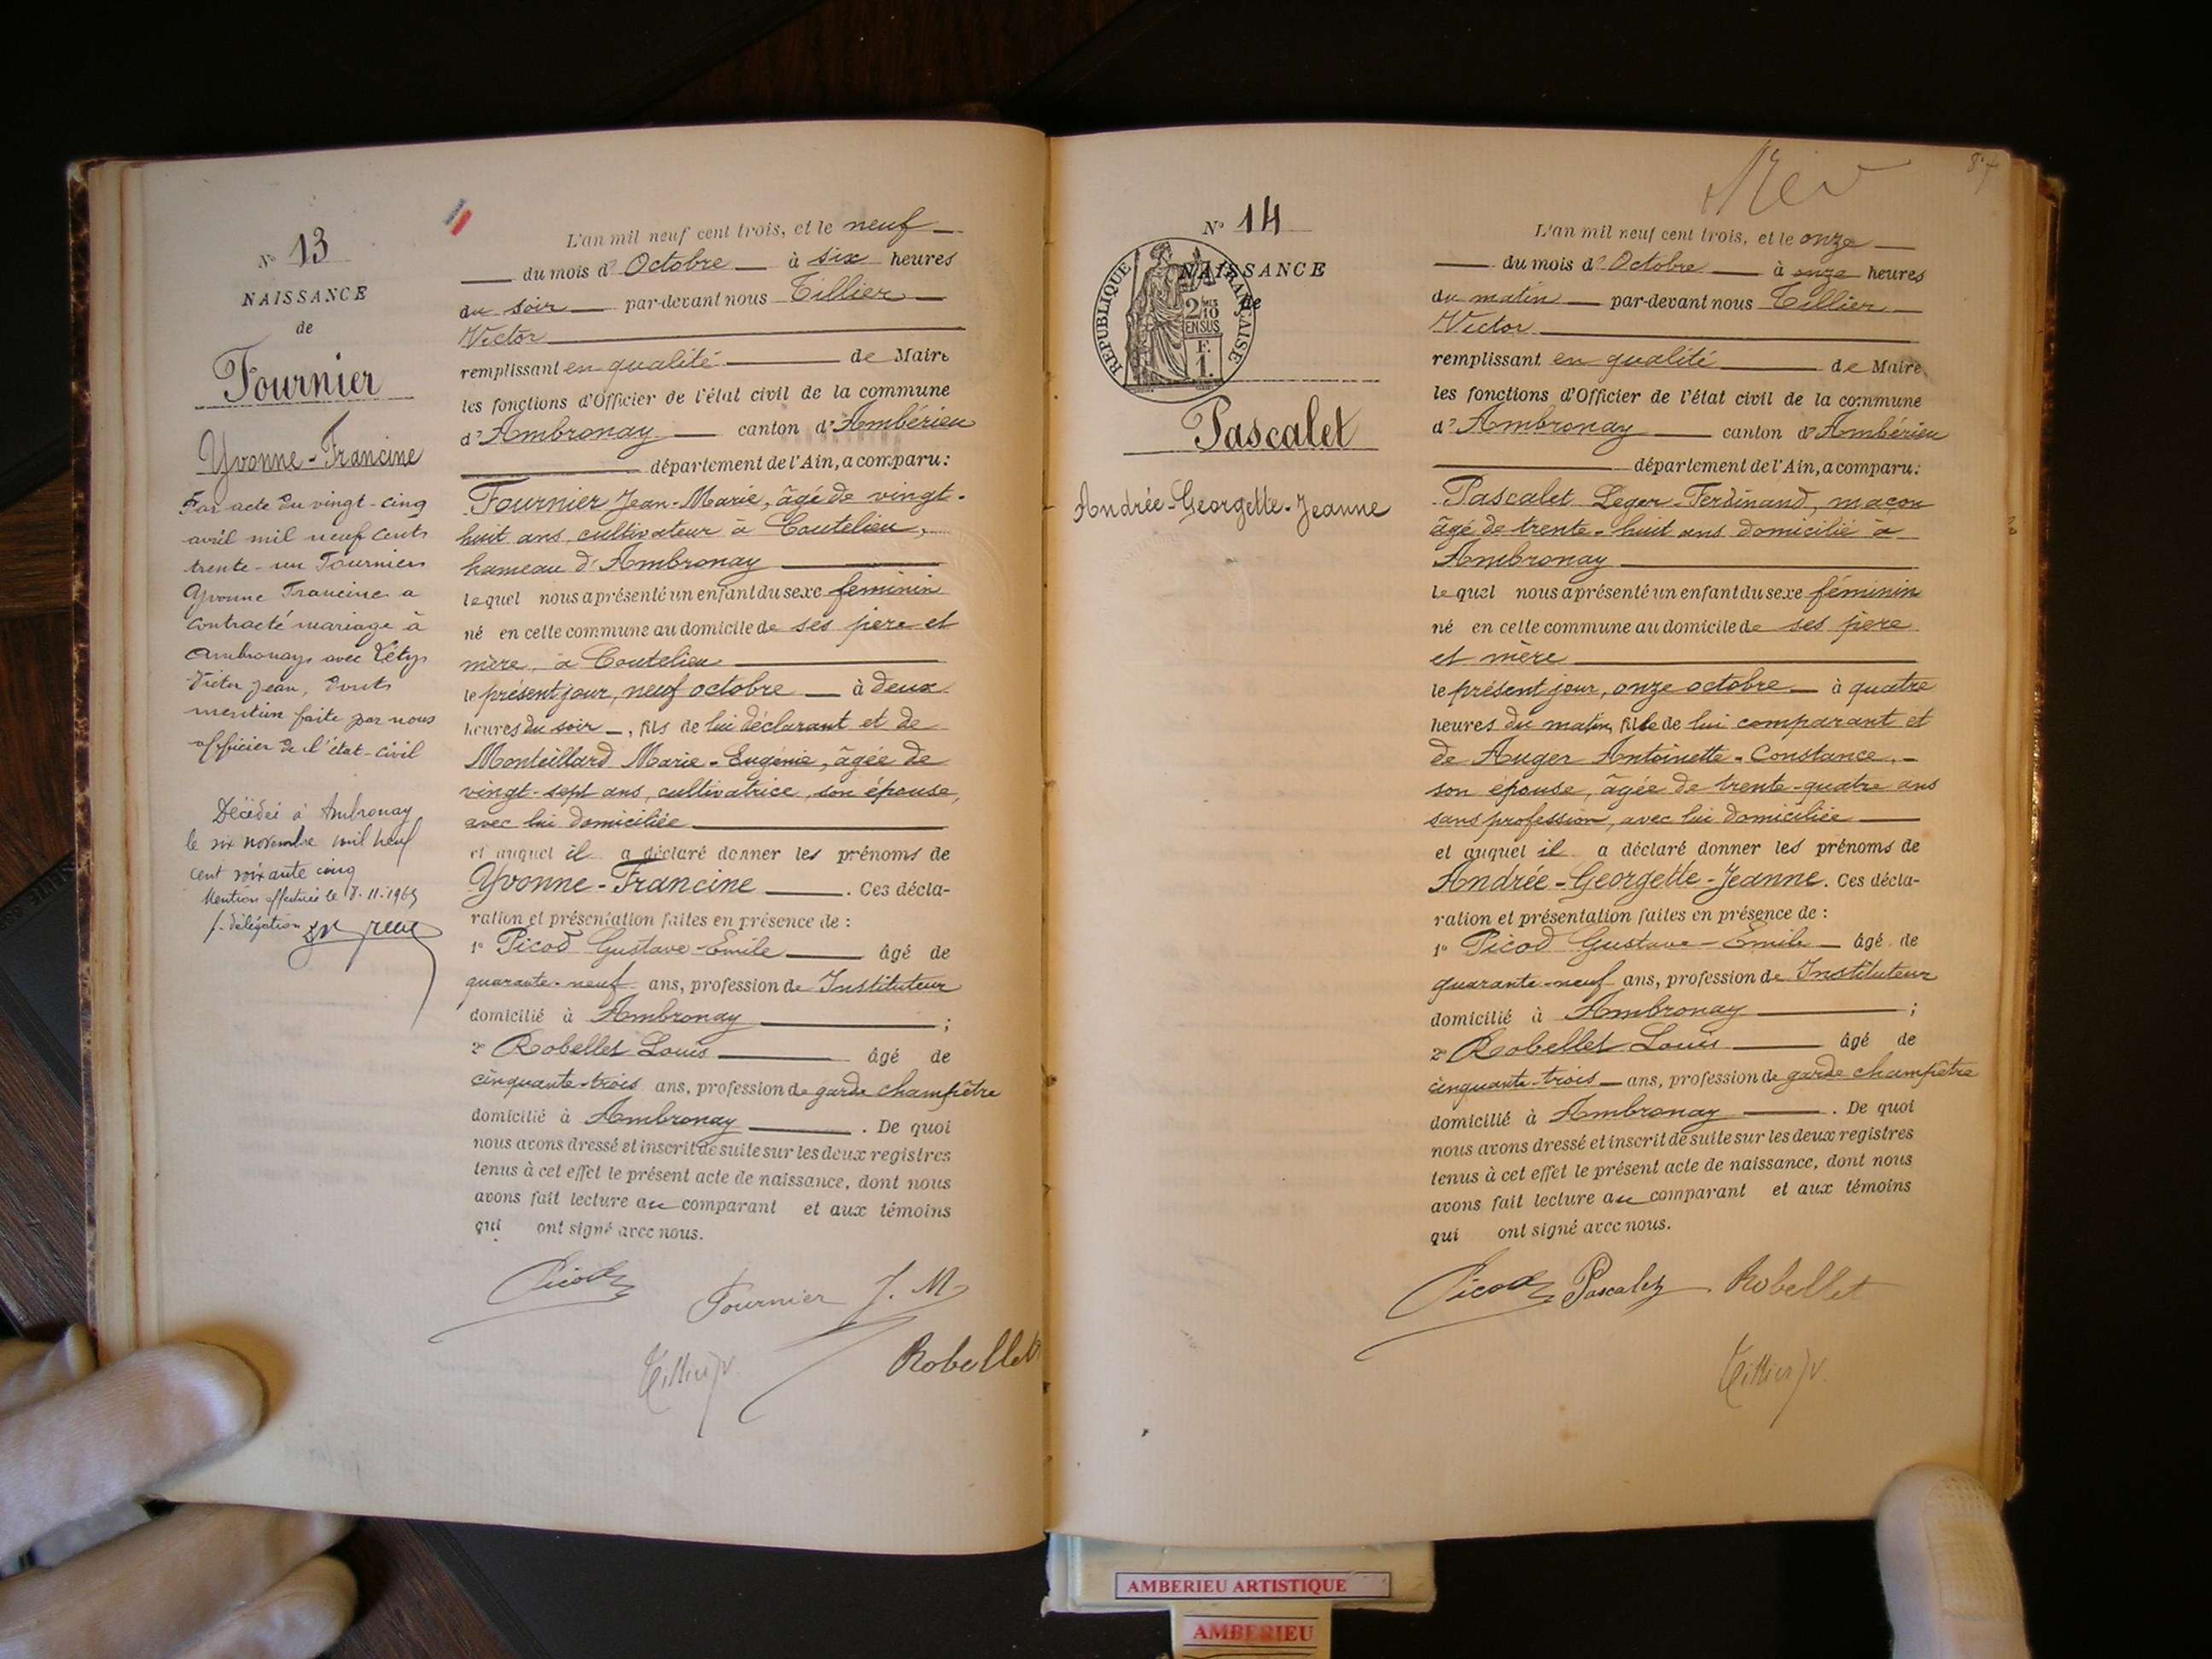 Nº 13
NAISSANCE
de
Fournier
Yvonne-Francine
Par acte du vingt-cinq
avril mil neuf cent
trente-un Fournier
Yvonne Francine a
contracté mariage à
Ambronay avec Létys
Victor Jean, dont
mention faite par nous
officier de l'état-civil
Décédée à Ambronay
le six novembre mil neuf
cent soixante cinq
Mention effectuée le 8.11.1965
p. délégation
L'an mil neuf cent trois, et le neuf
du mois d'Octobre à six heures
du soir par-devant nous Tillier
Victor
remplissant en qualité de Maire
les fonctions d'Officier de l'état civil de la commune
d'Ambronay canton d'Ambérieu
département de l'Ain, a comparu:
Fournier Jean-Marie, âgé de vingt-
huit ans, cultivateur à Coutelieu,
hameau d'Ambronay
lequel nous a présenté un enfant du sexe féminin
né en cette commune au domicile de ses père et
mère, à Coutelieu
le présent jour, neuf octobre à deux
heures du soir, fils de lui déclarant et de
Monteillard Marie-Eugénie, âgée de
vingt-sept ans, cultivatrice, son épouse,
avec lui domiciliée
et auquel il a déclaré donner les prénoms de
Yvonne-Francine. Ces décla-
ration et présentation faites en présence de:
1º Picod Gustave-Emile âgé de
quarante-neuf ans, profession de Instituteur
domicilié à Ambronay;
2º Robellet Louis âgé de
cinquante-trois ans, profession de garde champêtre
domicilié à Ambronay. De quoi
nous avons dressé et inscrit de suite sur les deux registres
tenus à cet effet le présent acte de naissance, dont nous
avons fait lecture au comparant et aux témoins
qui ont signé avec nous.
Picod
Fournier J. M
Tillier V.
Robellet
87
Nº 14
NAISSANCE
de
RÉPUBLIQUE FRANÇAISE
2/10
EN SUS
F.
1.
Pascalet
Andrée-Georgette-Jeanne
L'an mil neuf cent trois, et le onze
du mois d'Octobre à onze heures
du matin par-devant nous Tillier
Victor
remplissant en qualité de Maire
les fonctions d'Officier de l'état civil de la commune
d'Ambronay canton d'Ambérieu
département de l'Ain, a comparu:
Pascalet Leger-Ferdinand, maçon
âgé de trente-huit ans domicilié à
Ambronay
lequel nous a présenté un enfant du sexe féminin
né en cette commune au domicile de ses père
et mère
le présent jour, onze octobre à quatre
heures du matin, fille de lui comparant et
de Auger Antoinette-Constance,
son épouse, âgée de trente-quatre ans
sans profession, avec lui domiciliée
et auquel il a déclaré donner les prénoms de
Andrée-Georgette-Jeanne. Ces décla-
ration et présentation faites en présence de:
1º Picod Gustave-Emile âgé de
quarante-neuf ans, profession de Instituteur
domicilié à Ambronay;
2º Robellet Louis âgé de
cinquante-trois ans, profession de garde champêtre
domicilié à Ambronay. De quoi
nous avons dressé et inscrit de suite sur les deux registres
tenus à cet effet le présent acte de naissance, dont nous
avons fait lecture au comparant et aux témoins
qui ont signé avec nous.
Picod Pascalet Robellet
Tillier V.
AMBERIEU ARTISTIQUE
AMBERIEU